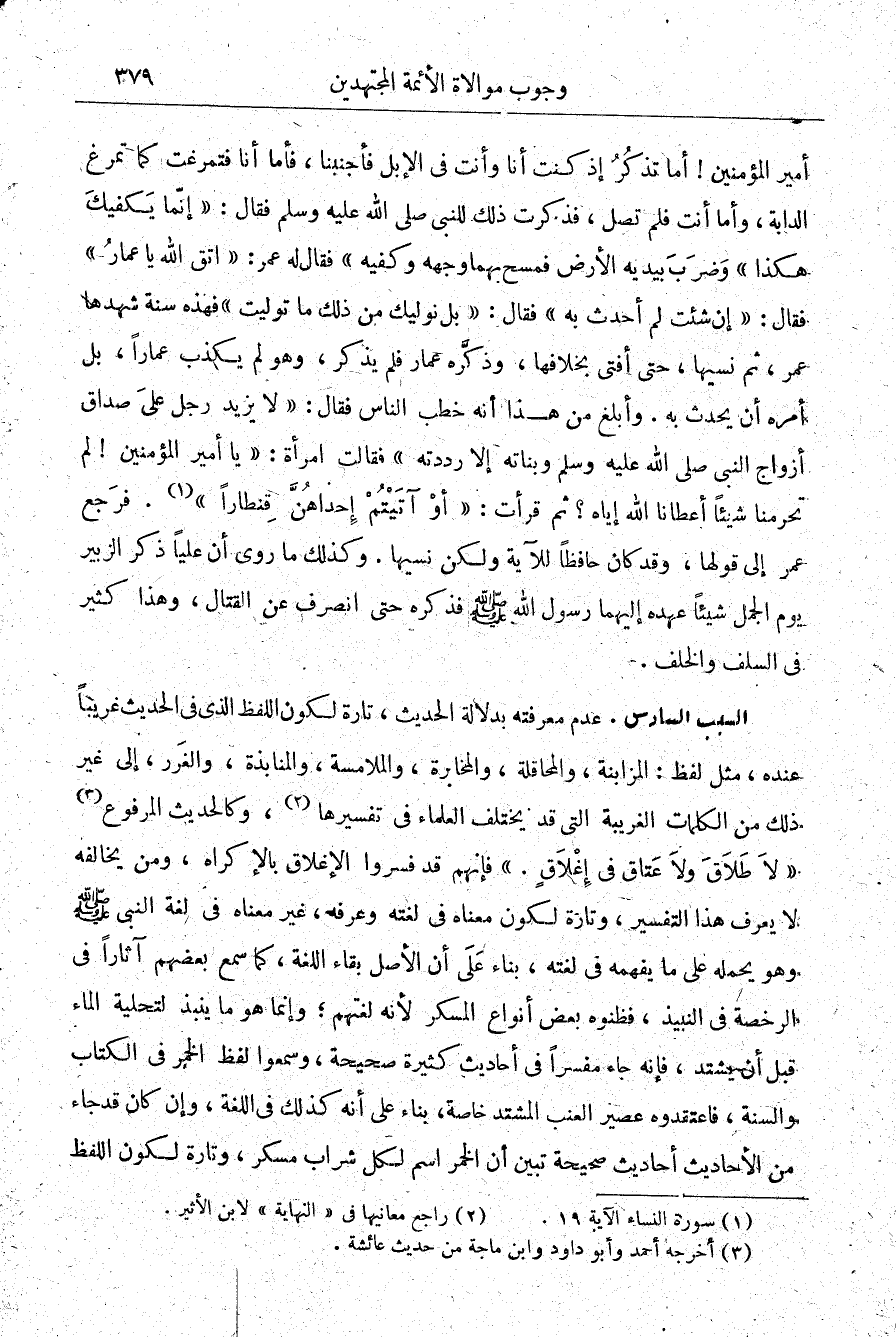 وجوب موالاة الأئمة المجتهدين ٣٧٩
أمير المؤمنين ! أما تذكُرُ إذ كنت أنا وأنت فى الإبل فأجنبنا ، فأما أنا فتمرغت كما تمرغ
الدابة ، وأما أنت فلم تصل ، فذكرت ذلك للنبى صلى الله عليه وسلم فقال : « إنّما يَكفيكَ
هكذا » وَضرَبَ بيديه الأرض فمسح بهما وجهه وكفيه » فقال له عمر : « اتق الله يا عمارُ »
فقال : « إن شئت لم أحدث به » فقال : « بل نوليك من ذلك ما توليت » فهذه سنة شهدها
عمر ، ثم نسيها ، حتى أفتى بخلافها ، وذكَّره عمار فلم يذكر ، وهو لم يكذب عماراً ، بل
أمره أن يحدث به . وأبلغ من هذا أنه خطب الناس فقال : « لا يزيد رجل علىَ صداق
أزواج النبى صلى الله عليه وسلم وبناته إلا رددته » فقالت امرأة : « يا أمير المؤمنين ! لم
تحرمنا شيئاً أعطانا الله إياه ؟ ثم قرأت : « أوْ آتَيْتُمْ إِحداهُنَّ قِنطاراً »(١) . فرَجع
عمر إلى قولها ، وقد كان حافظاً للآية ولكن نسيها . وكذلك ما روى أن علياً ذكر الزبير
يوم الجمل شيئاً عهده إليهما رسول الله ﷺ فذكره حتى انصرف عن القتال ، وهذا كثير
فى السلف والخلف .
السبب السادس . عدم معرفته بدلالة الحديث ، تارة لكون اللفظ الذى فى الحديث غريباً
عنده ، مثل لفظ : المزابنة ، والمحاقلة ، والمخابرة ، والملامسة ، والمنابذة ، والغَرر ، إلى غير
ذلك من الكلمات الغريبة التى قد يختلف العلماء فى تفسيرها (٢) ، وكالحديث المرفوع (٣)
« لاَ طَلاَقَ ولاَ عَتاق فى إِغْلاَقٍ . » فإنهم قد فسروا الإغلاق بالإكراه ، ومن يخالفه
لا يعرف هذا التفسير ، وتارة لكون معناه فى لغته وعرفه ، غير معناه فى لغة النبى ﷺ
وهو يحمله على ما يفهمه فى لغته ، بناء عَلَى أن الأصل بقاء اللغة ، كما سمع بعضهم آثاراً فى
الرخصة فى النبيذ ، فظنوه بعض أنواع المسكر لأنه لغتهم ؛ وإنما هو ما ينبذ لتحلية الماء
قبل أن يشتد ، فإنه جاء مفسراً فى أحاديث كثيرة صحيحة ، وسمعوا لفظ الخمر فى الكتاب
والسنة ، فاعتقدوه عصير العنب المشتد خاصة ، بناء على أنه كذلك فى اللغة ، وإن كان قد جاء
من الأحاديث أحاديث صحيحة تبين أن الخمر اسم لكل شراب مسكر ، وتارة لكون اللفظ
(١) سورة النساء الآية ١٩ . (٢) راجع معانيها فى « النهاية » لابن الأثير .
(٣) أخرجه أحمد وأبو داود وابن ماجة من حديث عائشة .